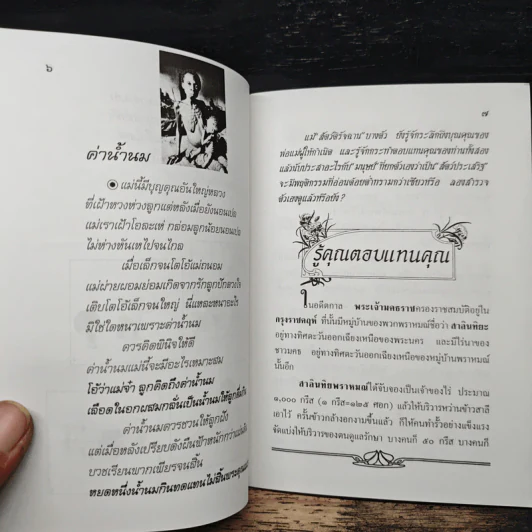 ๖
ค่าน้ำนม
แม่นี้มีบุญคุณอันใหญ่หลวง
ที่เฝ้าหวงห่วงลูกแต่หลังเมื่อยังนอนเปล
แม่เราเฝ้าโอละเห่ กล่อมลูกน้อยนอนเปล
ไม่ห่างหันเหไปจนไกล
เมื่อเล็กจนโตโอ้แม่ถนอม
แม่ผ่ายผอมย่อมเกิดจากรักลูกปักดวงใจ
เติบโตโอ้เล็กจนใหญ่ นี่แหละหนาอะไร
มิใช่ใดหนาเพราะค่าน้ำนม
ควรคิดพินิจให้ดี
ค่าน้ำนมแม่นี้จะมีอะไรเหมาะสม
โอ้ว่าแม่จ๋า ลูกคิดถึงค่าน้ำนม
เลือดในอกผสมกลั่นเป็นน้ำนมให้ลูกดื่มกิน
ค่าน้ำนมควรชวนให้ลูกฝัง
แต่เมื่อหลังเปรียบดังผืนฟ้าหนักกว่าแผ่นดิน
บวชเรียนพากเพียรจนสิ้น
หยดหนึ่งน้ำนมกินทดแทนไม่สิ้นพระคุณแม่
๗
แม้ "สัตว์ดิรัจฉาน" บางตัว ยังรู้จักระลึกถึงบุญคุณของ
พ่อแม่ผู้ให้กำเนิด และรู้จักกระทำตอบแทนคุณของท่านทั้งสอง
แล้วนับประสาอะไรกับ "มนุษย์" ที่ยกตัวเองว่าเป็น "สัตว์ประเสริฐ"
จะมีพฤติกรรมที่อ่อนด้อยต่ำทรามกว่าเชียวหรือ ลองสำรวจ
ตัวเองดูแล้วหรือยัง ?
รู้คุณตอบแทนคุณ
ในอดีตกาล พระเจ้ามคธราชครองราชสมบัติอยู่ใน
กรุงราชคฤห์ ที่นั้นมีหมู่บ้านของพวกพราหมณ์ชื่อว่า สาลินทิยะ
อยู่ทางทิศตะวันออกเฉียงเหนือของพระนคร และมีไร่นาของ
ชาวมคธ อยู่ทางทิศตะวันออกเฉียงเหนือของหมู่บ้านพราหมณ์
นั้นอีก
สาลินทิยพราหมณ์ได้จับจองเป็นเจ้าของไร่ ประมาณ
๑,๐๐๐ กรีส (๑ กรีส=๑๒๕ ศอก) แล้วให้บริวารหว่านข้าวสาลี
เอาไว้ ครั้นข้าวกล้างอกงามขึ้นแล้ว ก็ให้คนทำรั้วอย่างแข็งแรง
จัดแบ่งให้บริวารของตนดูแลรักษา บางคนก็ ๕๐ กรีส บางคนก็